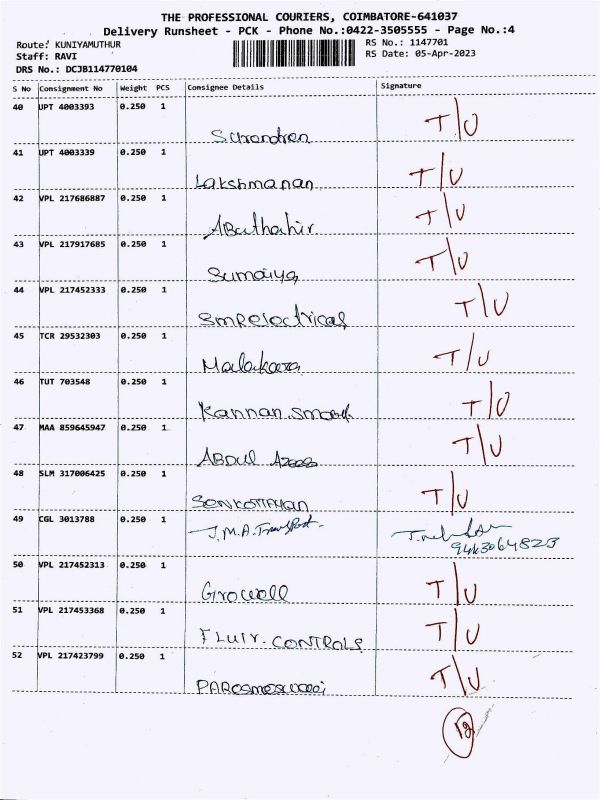 THE PROFESSIONAL COURIERS, COIMBATORE-641037
Delivery Runsheet - PCK - Phone No.:0422-3505555 - Page No.:4
Route: KUNIYAMUTHUR RS No.: 1147701
Staff: RAVI RS Date: 05-Apr-2023
DRS No.: DCJB114770104
S No Consignment No Weight PCS Consignee Details Signature
40 UPT 4003393 0.250 1 T/U
Surendren
41 UPT 4003339 0.250 1 T/U
Lakshmanan
42 VPL 217686887 0.250 1 T/U
Abuthahir
43 VPL 217917685 0.250 1 T/U
Sumaiya
44 VPL 217452333 0.250 1 T/U
SMR Electrical
45 TCR 29532303 0.250 1 T/U
46 TUT 703548 0.250 1 T/U
Kannan
47 MAA 859645947 0.250 1 T/U
ABDUL
48 SLM 317006425 0.250 1 T/U
49 CGL 3013788 0.250 1 J.M.A. Transport
50 VPL 217452313 0.250 1 T/U
Growell
51 VPL 217453368 0.250 1 T/U
CONTROLS
52 VPL 217423799 0.250 1 T/U